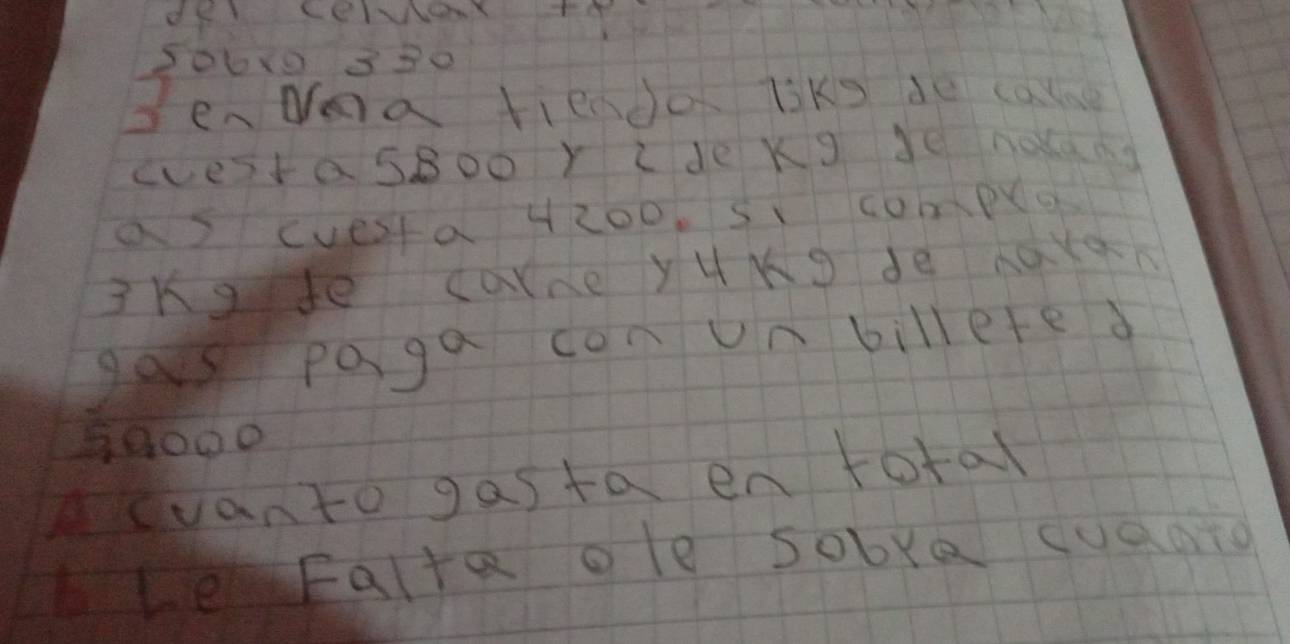 del celular
sobro 330
3 en una tienda 1 kg de carne
cuesta 5800 y 2 de kg de narang
as cuesta 4200. si compra
3Kg de carne y 4 Kg de naran
gas paga con un billete d
50000
A cuanto gasta en total
b Le Falta o le sobra cuanto